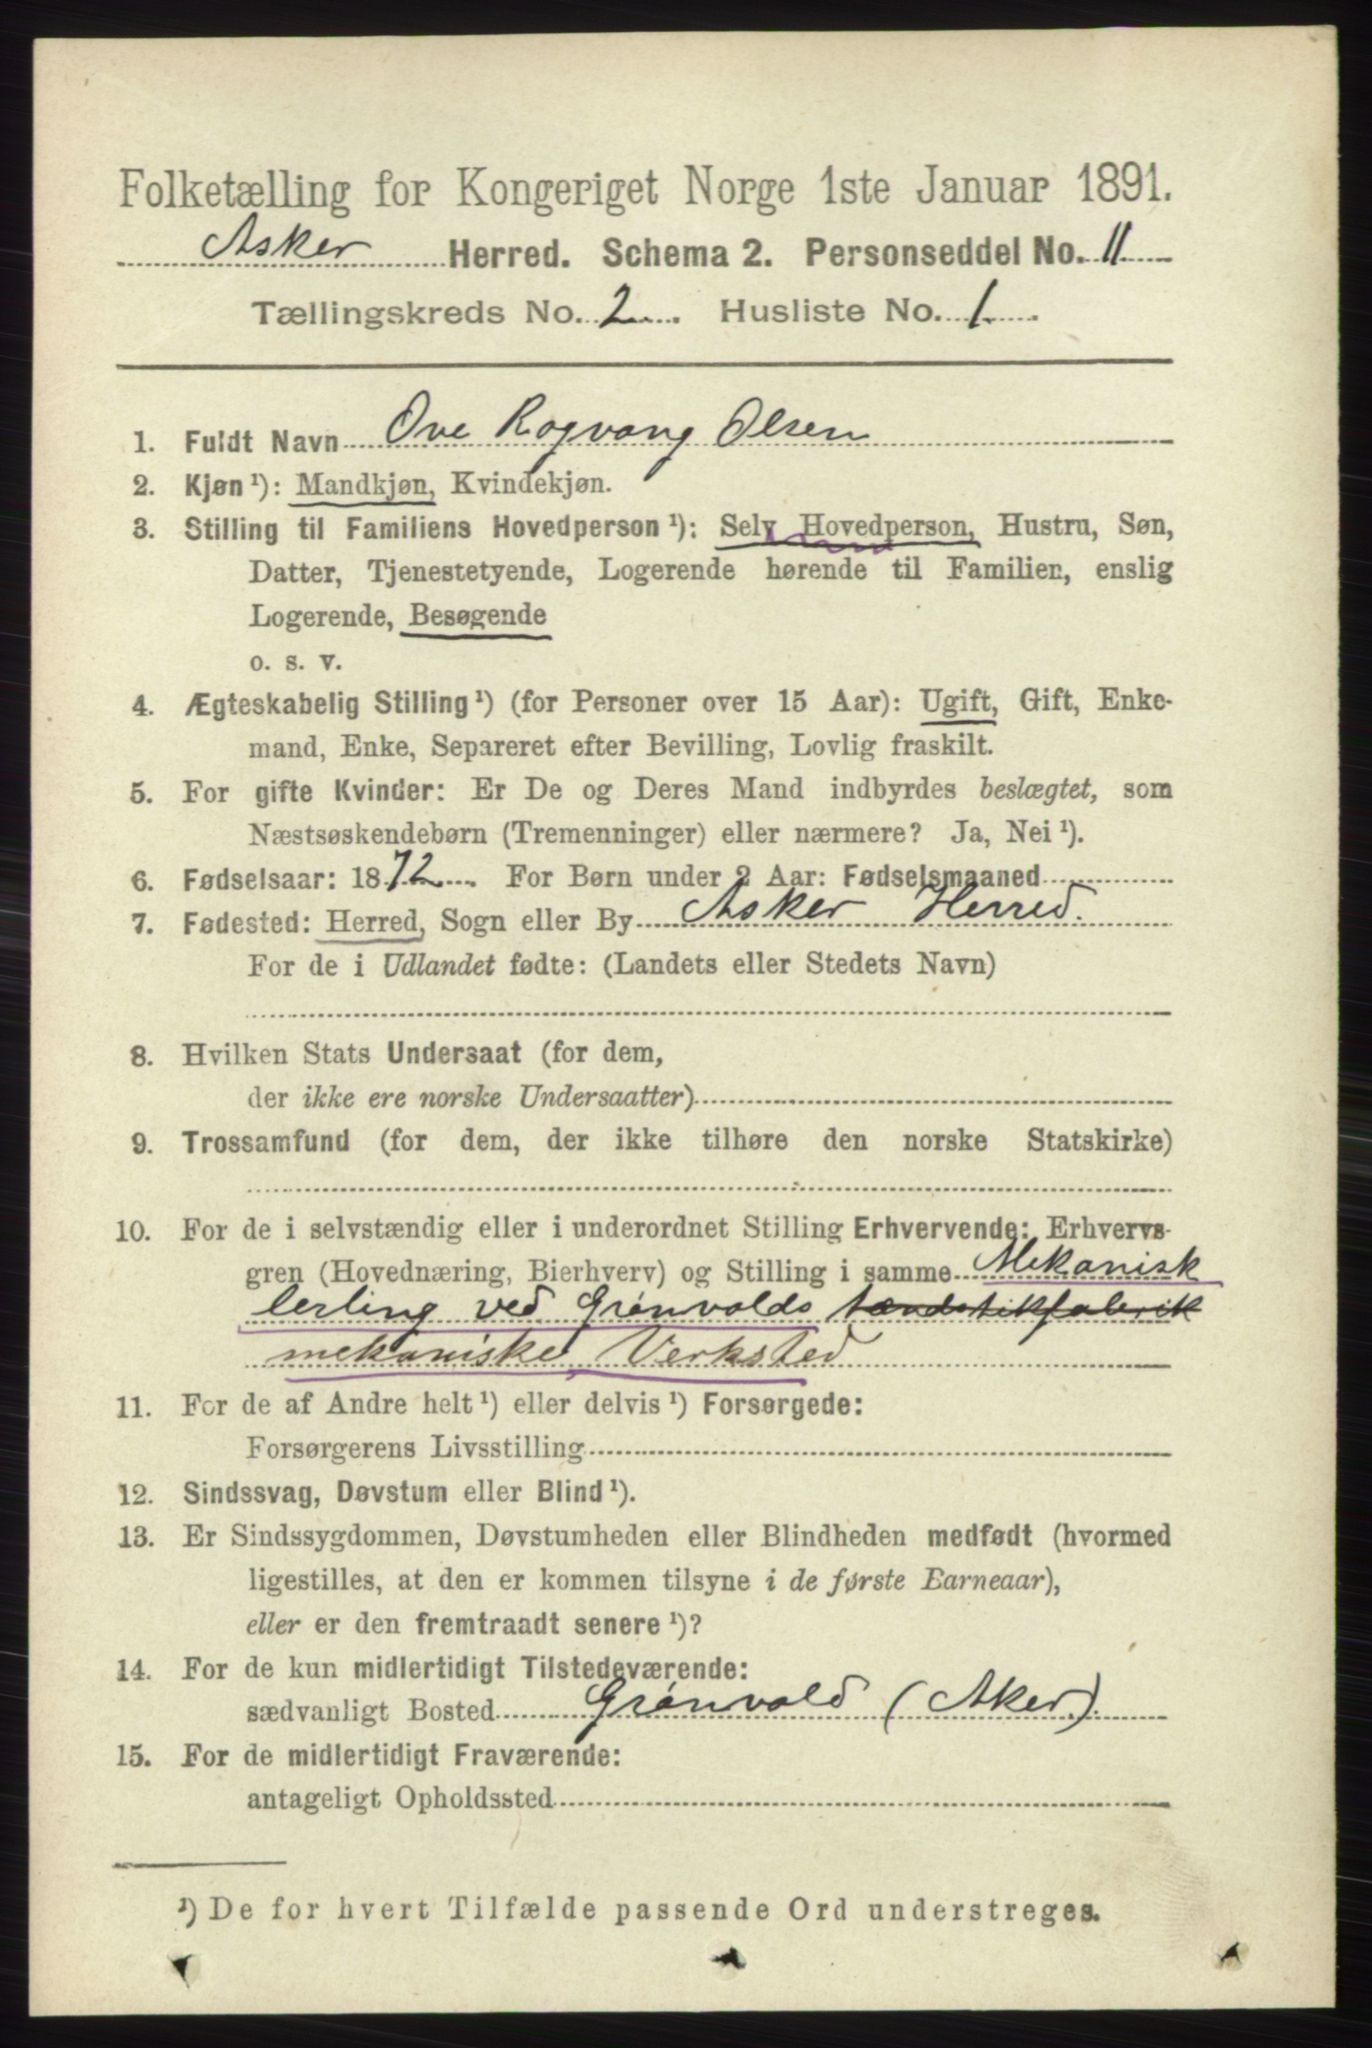 Folketælling for Kongeriget Norge 1ste Januar 1891.
Asker Herred. Schema 2. Personseddel No. 11
Tællingskreds No. 2. Husliste No. 1.
1. Fuldt Navn Ove Rogvang Olsen
2. Kjøn ¹): Mandkjøn, Kvindekjøn.
3. Stilling til Familiens Hovedperson ¹): Selv Hovedperson, Hustru, Søn,
Datter, Tjenestetyende, Logerende hørende til Familien, enslig
Logerende, Besøgende
o. s. v.
4. Ægteskabelig Stilling ¹) (for Personer over 15 Aar): Ugift, Gift, Enke-
mand, Enke, Separeret efter Bevilling, Lovlig fraskilt.
5. For gifte Kvinder: Er De og Deres Mand indbyrdes beslægtet, som
Næstsøskendebørn (Tremenninger) eller nærmere? Ja, Nei ¹).
6. Fødselsaar: 1872. For Børn under 2 Aar: Fødselsmaaned
7. Fødested: Herred, Sogn eller By Asker Herred.
For de i Udlandet fødte: (Landets eller Stedets Navn)
8. Hvilken Stats Undersaat (for dem,
der ikke ere norske Undersaatter)
9. Trossamfund (for dem, der ikke tilhøre den norske Statskirke)
10. For de i selvstændig eller i underordnet Stilling Erhvervende: Erhvervs-
gren (Hovednæring, Bierhverv) og Stilling i samme Mekanisk
lerling ved Grønvolds tændstikfabrik
mekaniske Verksted
11. For de af Andre helt ¹) eller delvis ¹) Forsørgede:
Forsørgerens Livsstilling
12. Sindssvag, Døvstum eller Blind ¹).
13. Er Sindssygdommen, Døvstumheden eller Blindheden medfødt (hvormed
ligestilles, at den er kommen tilsyne i de første Barneaar),
eller er den fremtraadt senere ¹)?
14. For de kun midlertidigt Tilstedeværende:
sædvanligt Bosted Grønvold (Aker).
15. For de midlertidigt Fraværende:
antageligt Opholdssted
¹) De for hvert Tilfælde passende Ord understreges.